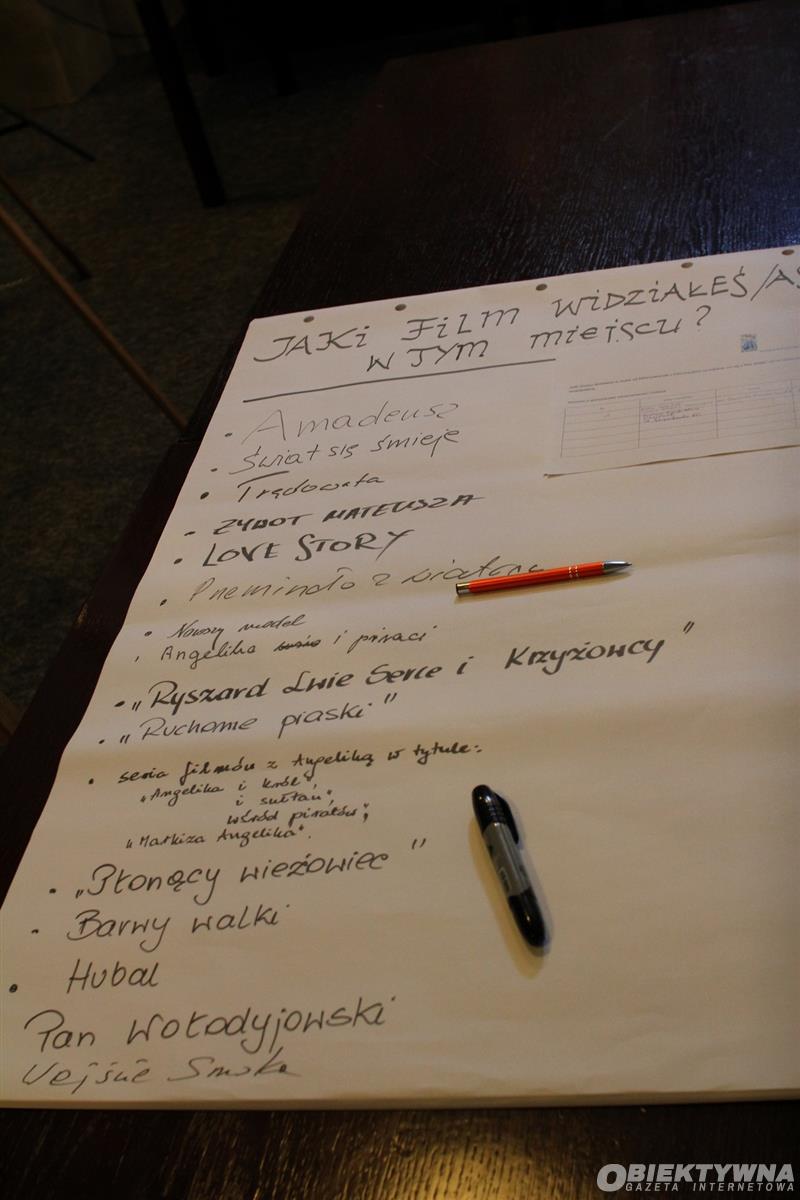 JAKI FILM WIDZIAŁEŚ/AŚ
W TYM MIEJSCU?
• Amadeusz
• Świat się śmieje
• Trędowata
• ŻYWOT MATEUSZA
• LOVE STORY
• Przeminęło z wiatrem
• Nowszy model
• Angelika i piraci
• „Ryszard Lwie Serce i Krzyżowcy"
• „Ruchome piaski"
• seria filmów z Angeliką w tytule:
„Angelika i król",
i sułtan",
wśród piratów";
„Markiza Angelika".
• „Płonący wieżowiec"
• Barwy walki
• Hubal
Pan Wołodyjowski
Wejście Smoka
OBIEKTYWNA
GAZETA INTERNETOWA